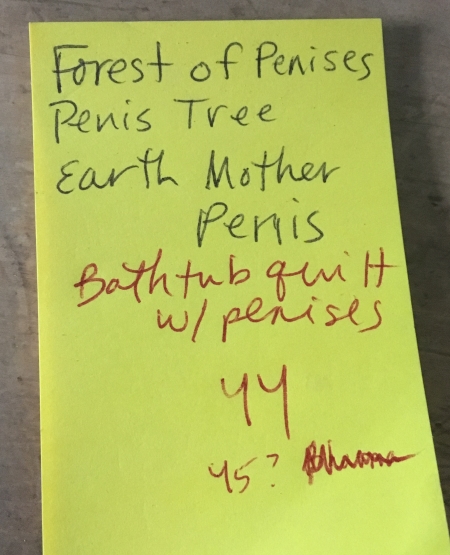 Forest of Penises
Penis Tree
Earth Mother
Penis
Bathtub quilt
w/ penises
44
45?